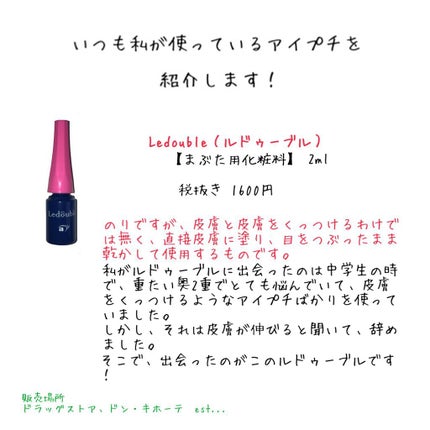 いつも私が使っているアイプチを
紹介します！
Ledouble（ルドゥーブル）
【まぶた用化粧料】 2ml
税抜き 1600円
のりですが、皮膚と皮膚をくっつけるわけで
は無く、直接皮膚に塗り、目をつぶったまま
乾かして使用するものです。
私がルドゥーブルに出会ったのは中学生の時
で、重たい奥2重でとても悩んでいて、皮膚
をくっつけるようなアイプチばかりを使って
いました。
しかし、それは皮膚が伸びると聞いて、辞め
ました。
そこで、出会ったのがこのルドゥーブルです
！
Ledouble
販売場所
ドラッグストア、ドン・キホーテ est...